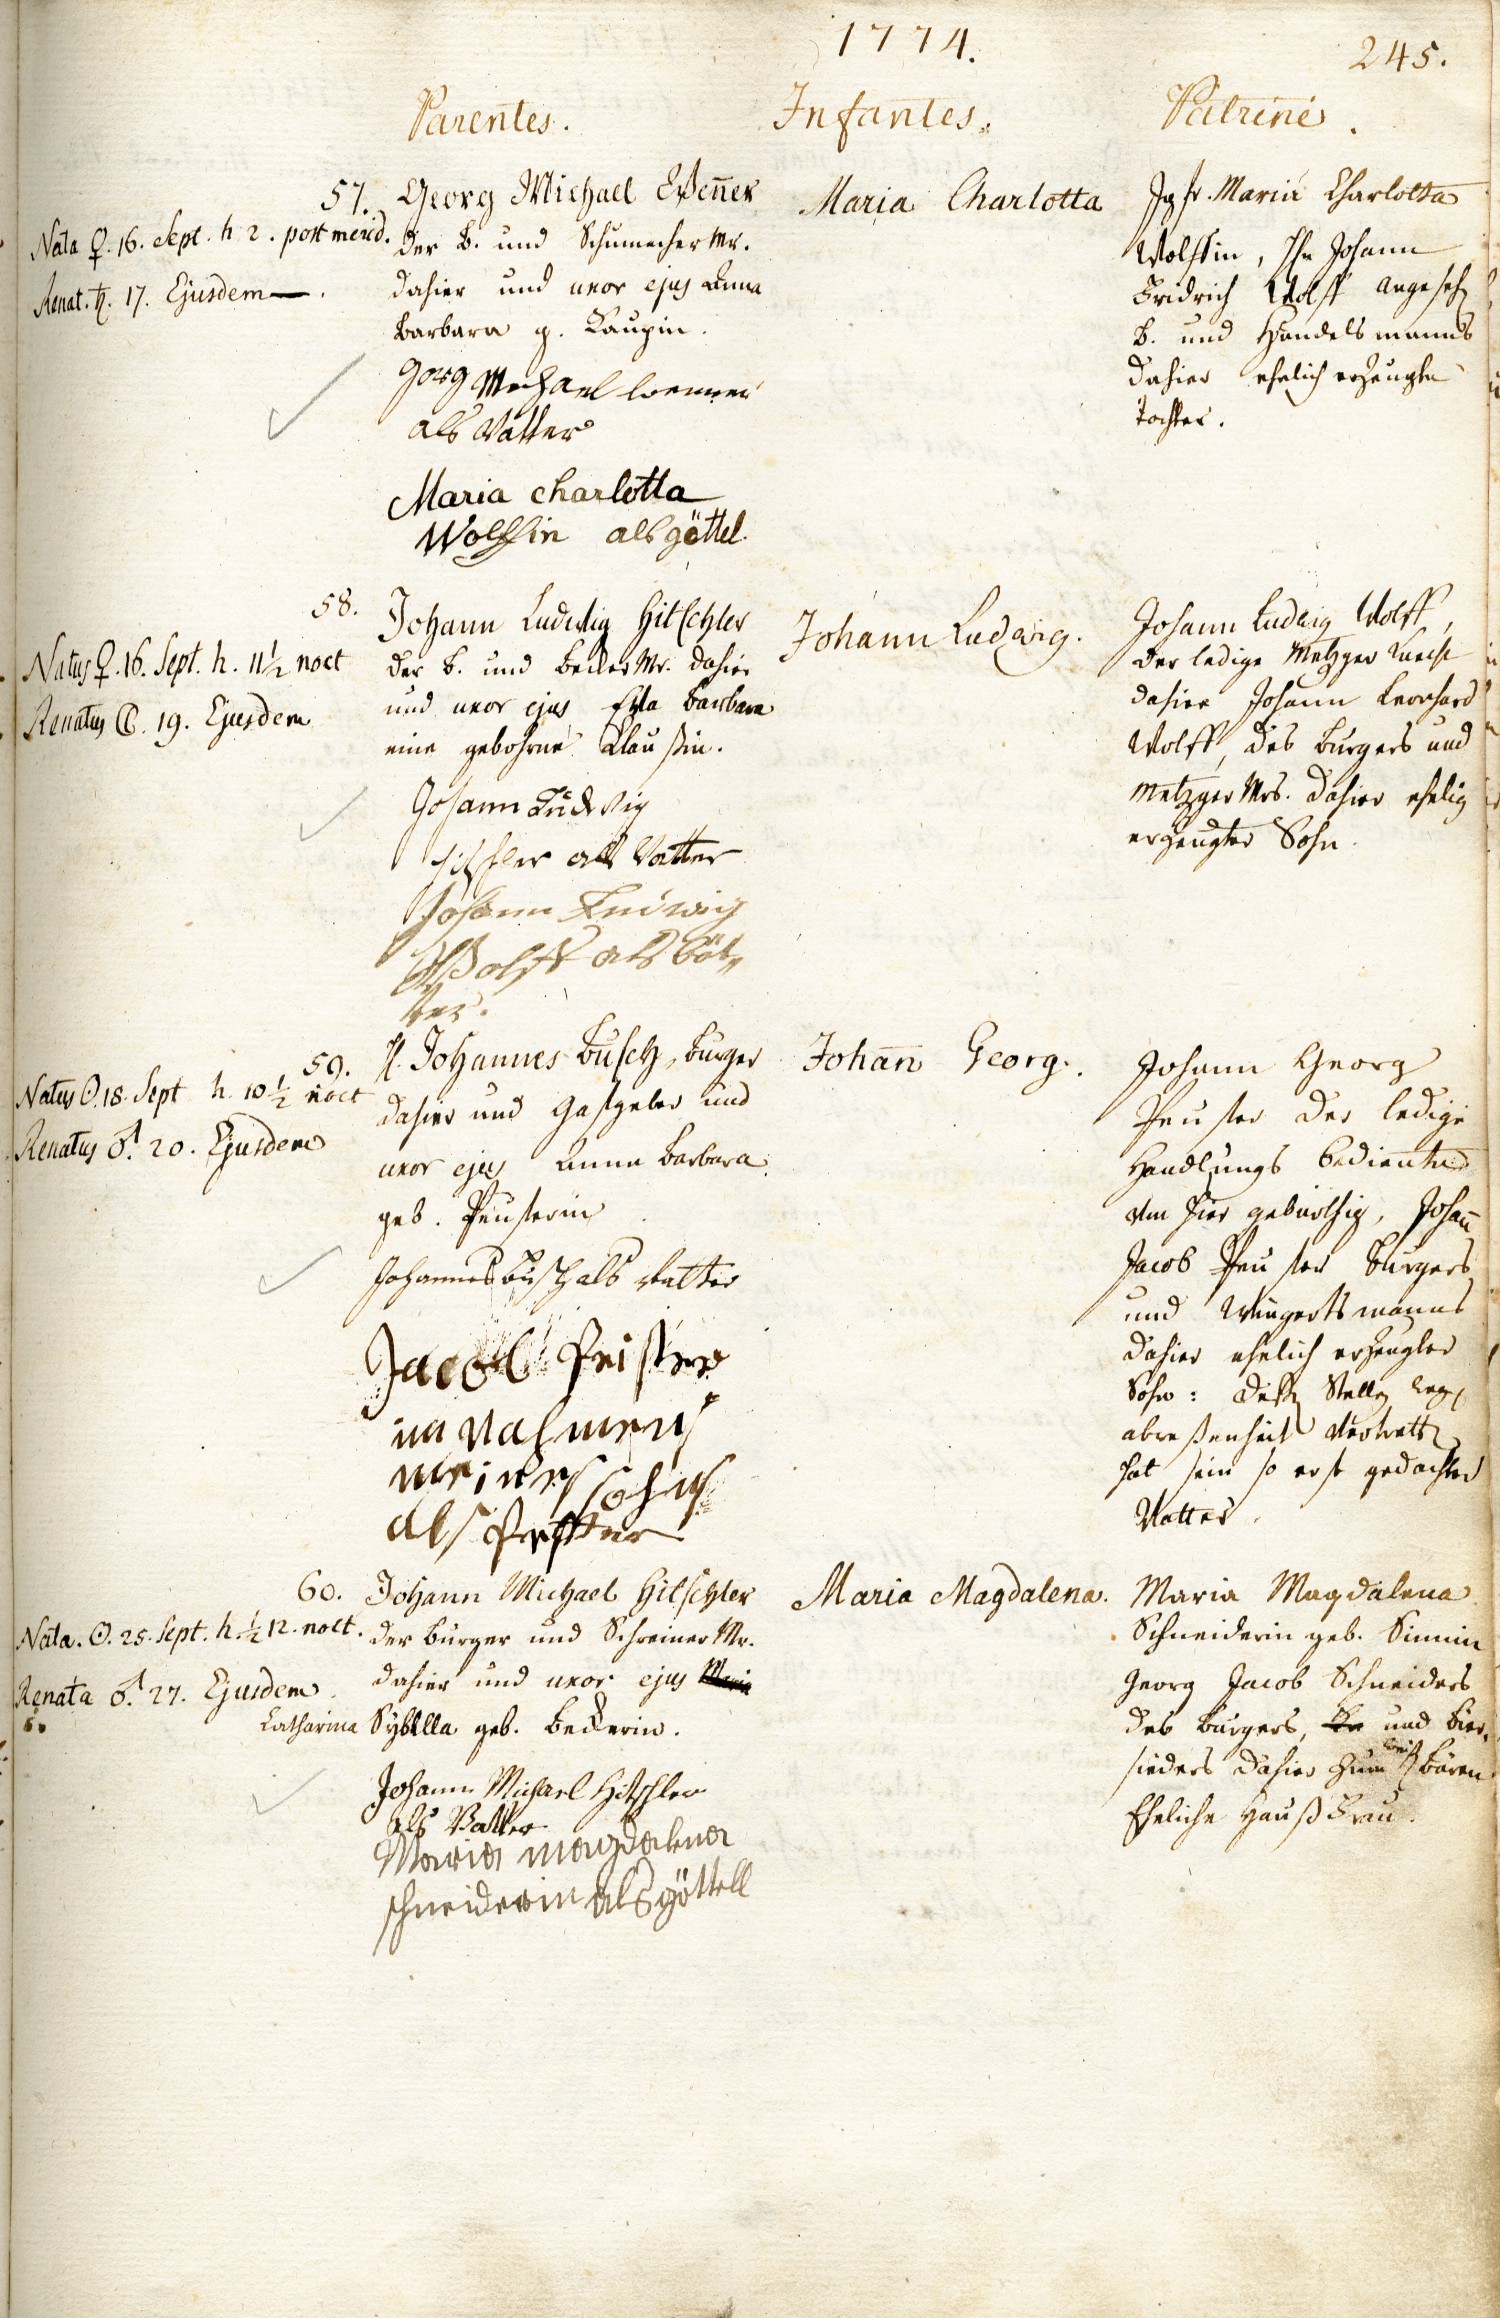 1774.
245.
Parentes.
Infantes.
Patrini.
57.
Nata ♀. 16. Sept. h. 2. post merid.
Renat. ♄. 17. Ejusdem
Georg Michael Wen̄er
der B. und Schumacher Mr.
dahier und uxor ejus Anna
Barbara g. Kaupin.
Gorg Mechael wenner
als Vatter
Maria charlotta
Wolffin als göttel.
Maria Charlotta
Jgfr. Maria Charlotta
Wolffin, Hn Johann
Fridrich Wolff angeseh
B. und Handelsmanns
dahier ehelich erzeugte
Tochter.
58.
Natus ♀. 16. Sept. h. 11½ noct
Renatus ☾. 19. Ejusdem
Johann Ludwig Hitschler
der B. und Becker Mr. dahier
und uxor ejus Eva Barbara
eine gebohrne Klaußin.
Johann Ludwig
Hischler als Vatter
Johann Ludwig
Wolff als
Johann Ludwig.
Johann Ludwig Wolff,
der ledige Metzger Knecht
dahier Johann Leonhard
Wolff, des Burgers und
Metzger Mrs. dahier ehelig
erzeugter Sohn.
59.
Natus ☉. 18. Sept h. 10½ noct
Renatus ♂. 20. Ejusdem
H. Johannes Busch, Burger
dahier und Gastgeber und
uxor ejus Anna Barbara
geb. Peusterin
Johannes Busch als Vatter
Jacob Peister
im Nahmen
meines sohns
als Petter
Johan̄ Georg.
Johann Georg
Peuster der ledige
Handlungs bediente
von hier gebürthig, Johan̄
Jacob Peuster Burgers
und Wingertsmanns
dahier ehelich erzeugter
Sohn: deß Stelle weg
abweßenheit vertrett
hat sein so erst gedachter
Vatter.
60.
Nata. ☉. 25. Sept. h. ½ 12. noct.
Renata ♂. 27. Ejusdem
Johann Michael Hitschler
der Burger und Schreiner Mr.
dahier und uxor ejus Maria
Catharina Sybilla geb. Beckerin.
Johann Michael Hitschler
als Vatter
Maria magdalena
schneiderin als göttell
Maria Magdalena.
Maria Magdalena
Schneiderin geb. Simmin
Georg Jacob Schneiders
des Burgers, und Bier-
sieders dahier zum Bären
Eheliche Hauß Frau.